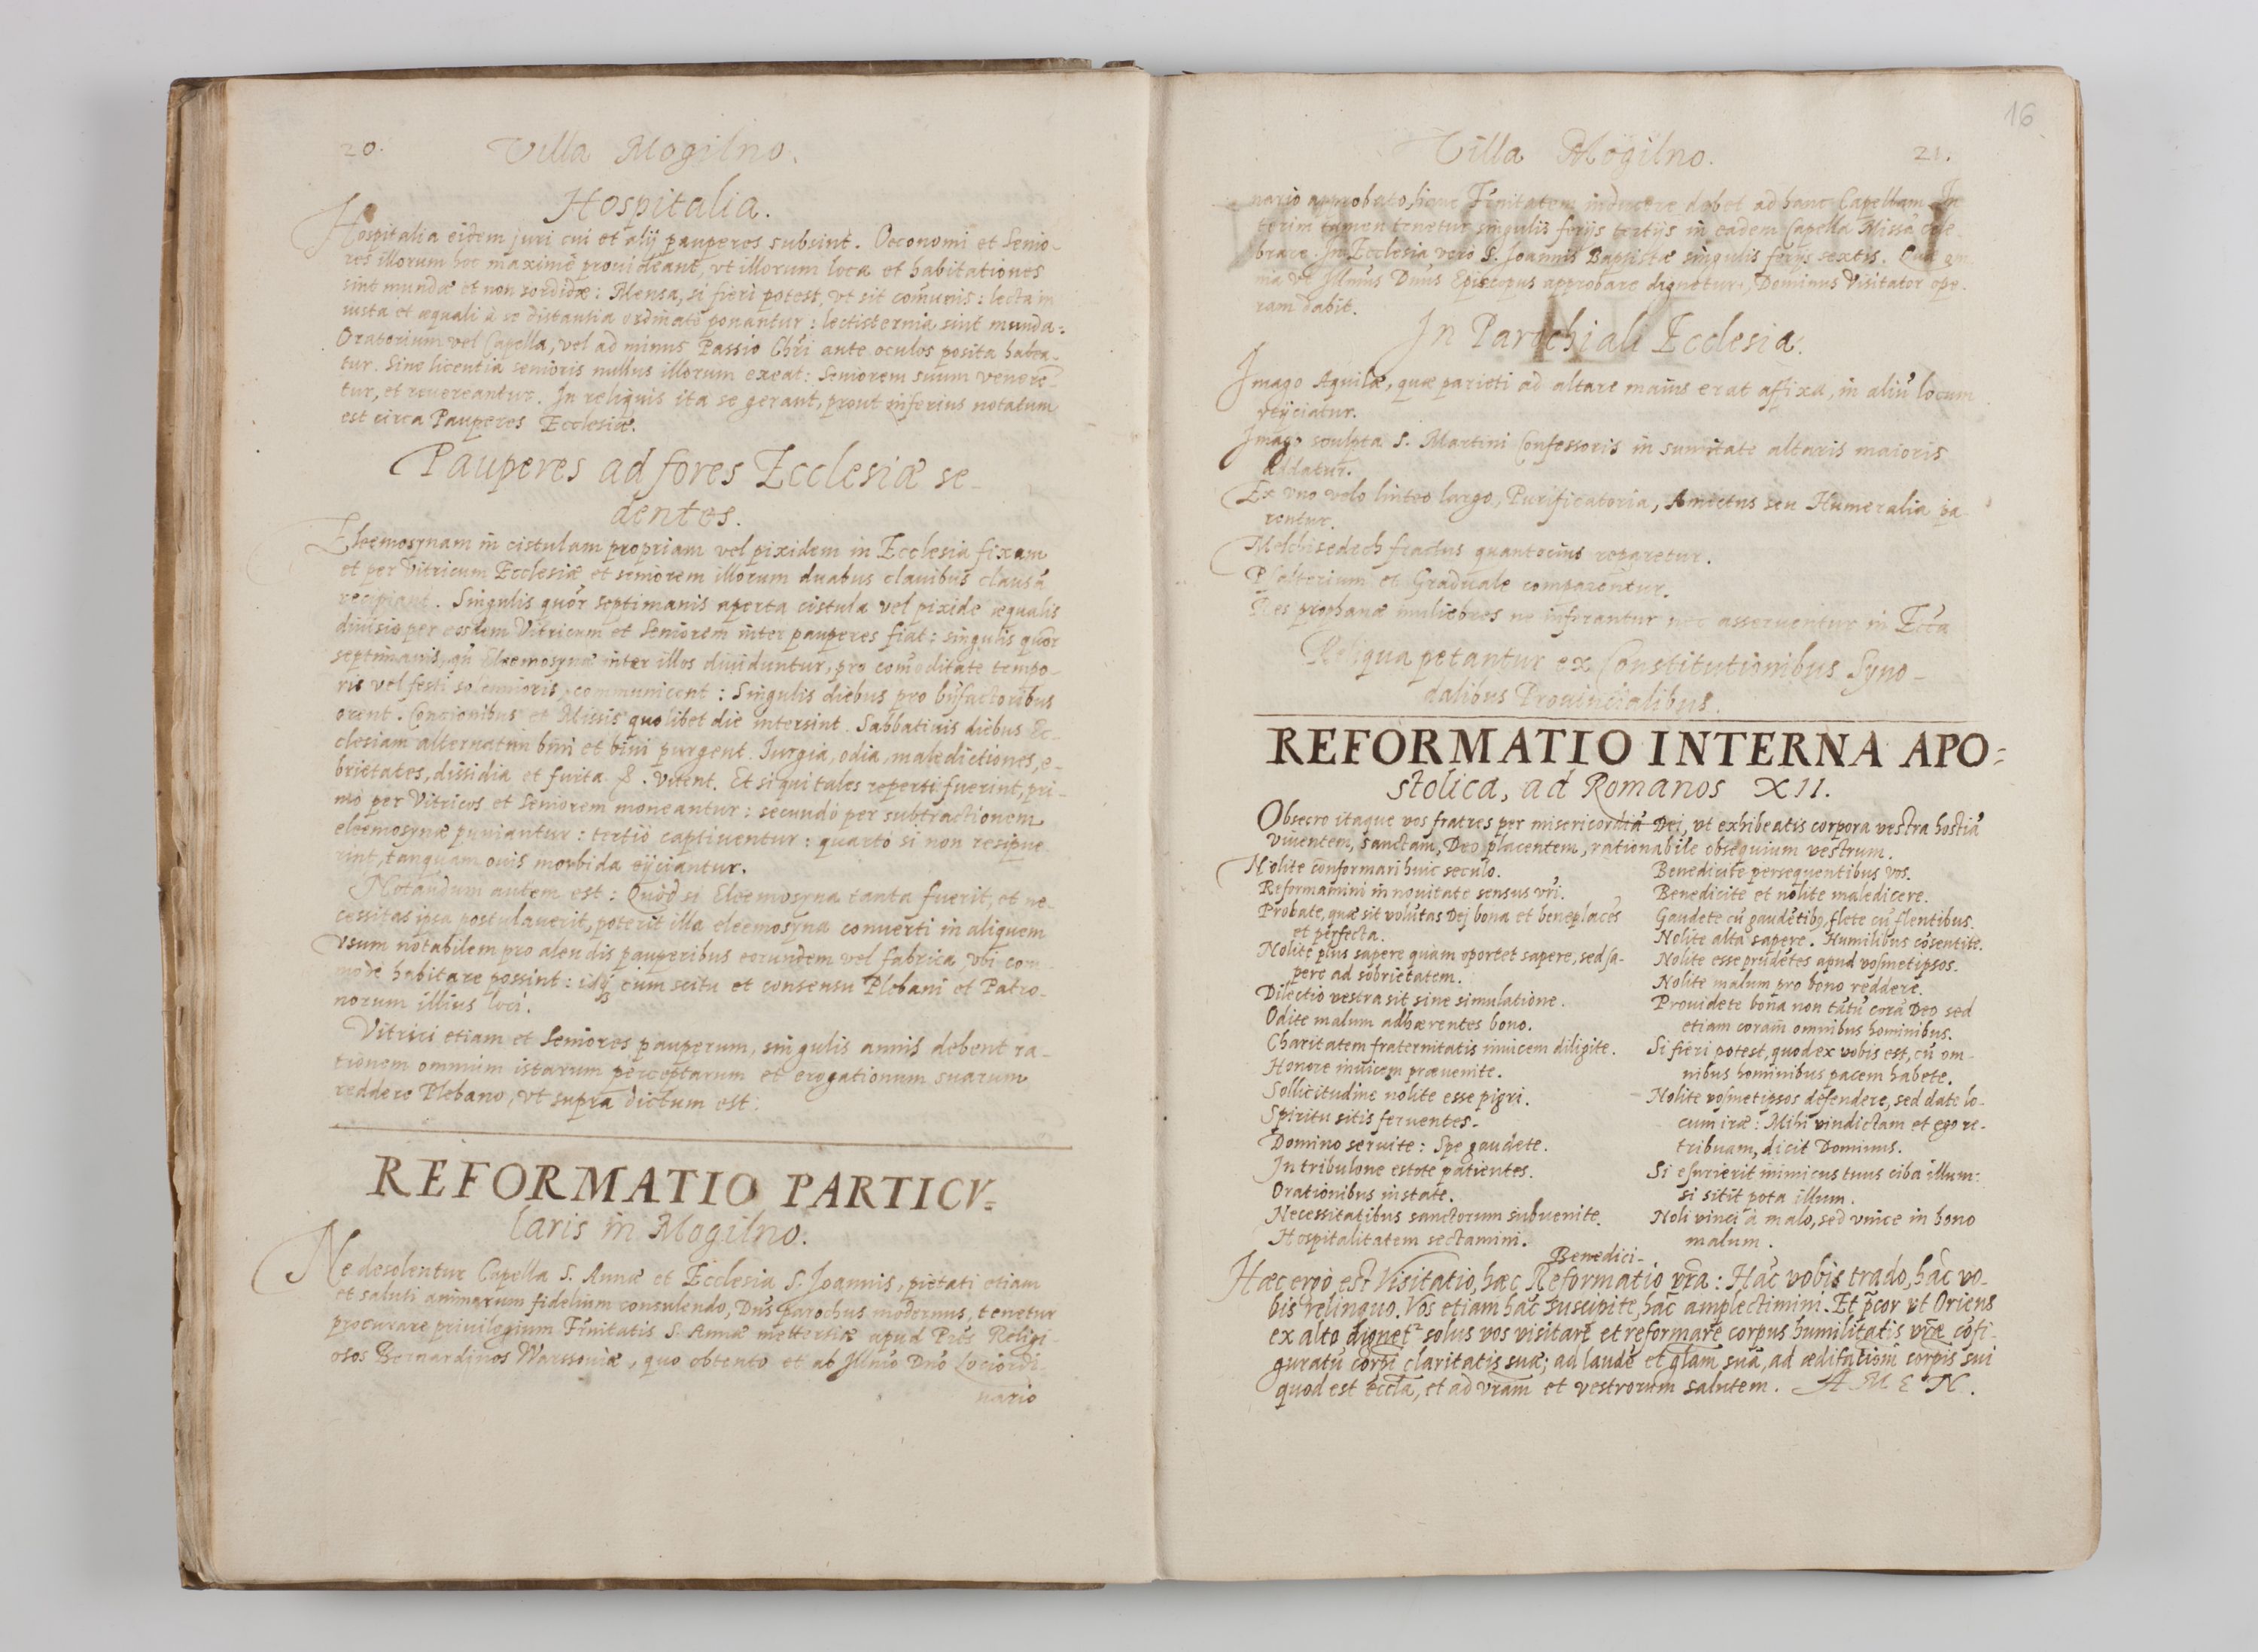 20.
Villa Mogilno.
Hospitalia.
Hospitalia eidem juri cui et alij pauperes subsint. Oeconomi et Senio-
res illorum hoc maximè prouideant, vt illorum loca et habitationes
sint mundæ et non sordidæ: Mensa, si fieri potest, vt sit comunis: lecta in
iusta et æquali à se distantia ordinatè ponantur: lectisternia sint munda:
Oratorium vel Capella, vel ad minus Passio Chri ante oculos posita habea-
tur. Sine licentia senioris nullus illorum exeat: Seniorem suum venere-
tur, et reuereantur. In reliquis ita se gerant, prout inferius notatum
est circa Pauperes Ecclesiæ.
Pauperes ad fores Ecclesiæ se-
dentes.
Eleemosynam in cistulam propriam vel pixidem in Ecclesia fixam
et per Vitricum Ecclesiæ et seniorem illorum duabus clauibus clausã
recipiant. Singulis quor septimanis aperta cistula vel pixide æqualis
diuisio per eosdem Vitricum et Seniorem inter pauperes fiat: singulis quor
septimanis, qñ Eleemosynæ inter illos diuiduntur, pro comoditate tempo-
ris vel festi solennioris, communicent: Singulis diebus pro bnfactoribus
orent. Concionibus et Missis quolibet die intersint. Sabbatinis diebus Ec-
clesiam alternatim bini et bini purgent. Jurgia, odia, maledictiones, e-
brietates, dissidia et furta &. vitent. Et si qui tales reperti fuerint, pri-
mò per Vitricos et Seniorem moneantur: secundò per subtractionem
eleemosynæ puniantur: tertiò captiuentur: quartò si non resipue-
rint, tanquam ouis morbida eijciantur.
Notandum autem est: Quòd si Eleemosyna tanta fuerit, et ne-
cessitas ipsa postulauerit, poterit illa eleemosyna conuerti in aliquem
vsum notabilem pro alendis pauperibus eorundem vel fabrica, vbi com-
modè habitare possint: idq cum scitu et consensu Plebani et Patro-
norum illius loci.
Vitrici etiam et Seniores pauperum, singulis annis debent ra-
tionem omnium istarum perceptarum et erogationum suarum
reddere Plebano, vt supra dictum est.
REFORMATIO PARTICV=
laris in Mogilno.
Ne desolentur Capella S. Annæ et Ecclesia S. Joannis, pietati etiam
et saluti animarum fidelium consulendo, Dns parochus modernus, tenetur
procurare priuilegium Frnitatis S. Annæ mettertiæ apud Pres Religi-
osos Bernardinos Warssouiæ, quo obtento et ab Illmo Dno Lociordi-
nario
16
Villa Mogilno.
21.
nario approbato, hanc Frnitatem inducere debet ad hanc Capellam. In
terim tamen tenetur singulis ferijs tertijs in eadem Capella Missã cele-
brare. In Ecclesia verò S. Joannis Baptistæ singulis ferijs sextis. Quæ om-
nia vt Illmus Dnus Episcopus approbare dignetur, Dominus Visitator ope-
ram dabit.
In Parochiali Ecclesia.
Imago Aquilæ, quæ parieti ad altare maius erat affixa, in aliũ locum
reijciatur.
Imago sculpta S. Martini Confessoris in sumitate altaris maioris
addatur.
Ex vno velo linteo largo, Purificatoria, Amictus seu Humeralia pa-
rentur.
Melchisedech fractus quantocius reparetur.
Psalterium et Graduale comparentur.
Res prophanæ muliebres ne inferantur nec asseruentur in Eccã
Reliqua petantur ex Constitutionibus Syno-
dalibus Prouincialibus.
REFORMATIO INTERNA APO=
stolica, ad Romanos XII.
Obsecro itaque vos fratres per misericordiã Dei, vt exhibeatis corpora vestra hostiã
viuentem, sanctam, Deo placentem, rationabile obsequium vestrum.
Nolite conformari huic seculo.
Reformamini in nouitate sensus vri.
Probate, quæ sit volũtas Dei bona et beneplacẽs
et perfecta.
Nolite plus sapere quàm oportet sapere, sed sa-
pere ad sobrietatem.
Dilectio vestra sit sine simulatione.
Odite malum adhærentes bono.
Charitatem fraternitatis inuicem diligite.
Honore inuicem præuenite.
Sollicitudine nolite esse pigri.
Spiritu sitis feruentes.
Domino seruite: Spe gaudete.
In tribulone estote patientes.
Orationibus instate.
Necessitatibus sanctorum subuenite.
Hospitalitatem sectamini.
Benedici-
Benedicite persequentibus vos.
Benedicite et nolite maledicere.
Gaudete cũ gaudẽtibq, flete cũ flentibus.
Nolite alta sapere. Humilibus cõsentite.
Nolite esse prudẽtes apud vosmetipsos.
Nolite malum pro bono reddere.
Prouidete bona non tãtũ corã Deo sed
etiam coram omnibus hominibus.
Si fieri potest, quod ex vobis est, cũ om-
nibus hominibus pacem habete.
Nolite vosmetipsos defendere, sed date lo-
cum iræ: Mihi vindictam et ego re-
tribuam, dicit Dominus.
Si esurierit inimicus tuus ciba illum:
si sitit pota illum.
Noli vinci à malo, sed vince in bono
malum.
Hæc ergò est Visitatio, hæc Reformatio vra: Hãc vobis trado, hãc vo-
bis relinquo. Vos etiam hãc suscipite, hãc amplectimini. Et pcor vt Oriens
ex alto dignet solus vos visitare et reformare corpus humilitatis vræ cõfi-
guratũ corpi claritatis suæ; ad laudẽ et glam suã, ad ædificationẽ corpis sui
quod est eccla, et ad vram et vestrorum salutem. AMEN.